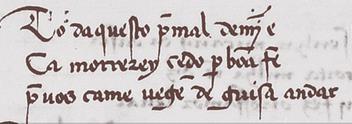 Tod daquesto p̃mal demj̃ e
Ca morrerey çedo p̱ bõa fe
p̃uos came vegẽ de guisa andar